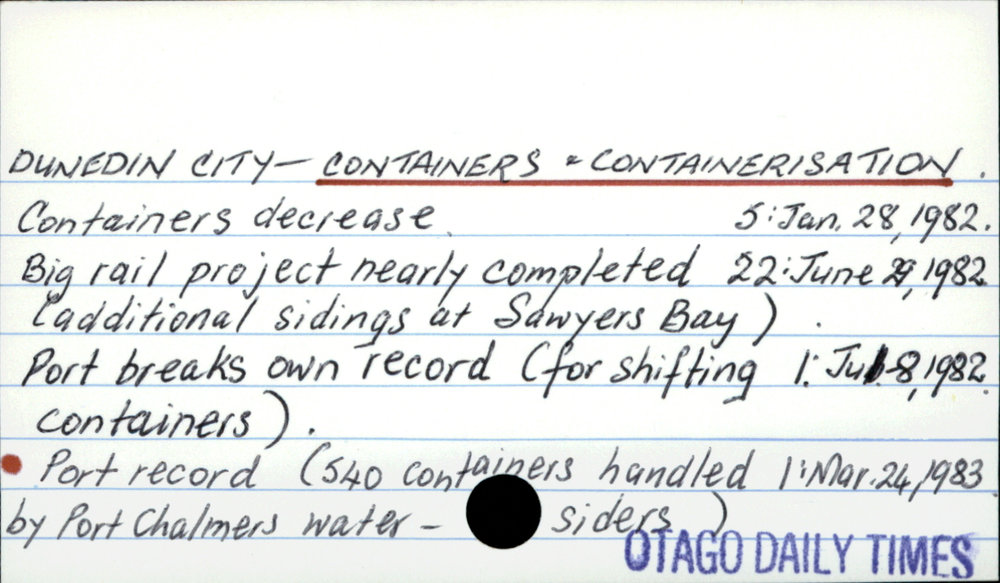 DUNEDIN CITY— CONTAINERS & CONTAINERISATION.
Containers decrease. 5: Jan. 28, 1982.
Big rail project nearly completed 22: June 29, 1982.
(additional sidings at Sawyers Bay).
Port breaks own record (for shifting 1: Jul. 8, 1982.
containers).
Port record (540 containers handled 1: Mar. 24, 1983
by Port Chalmers water- siders)
OTAGO DAILY TIMES